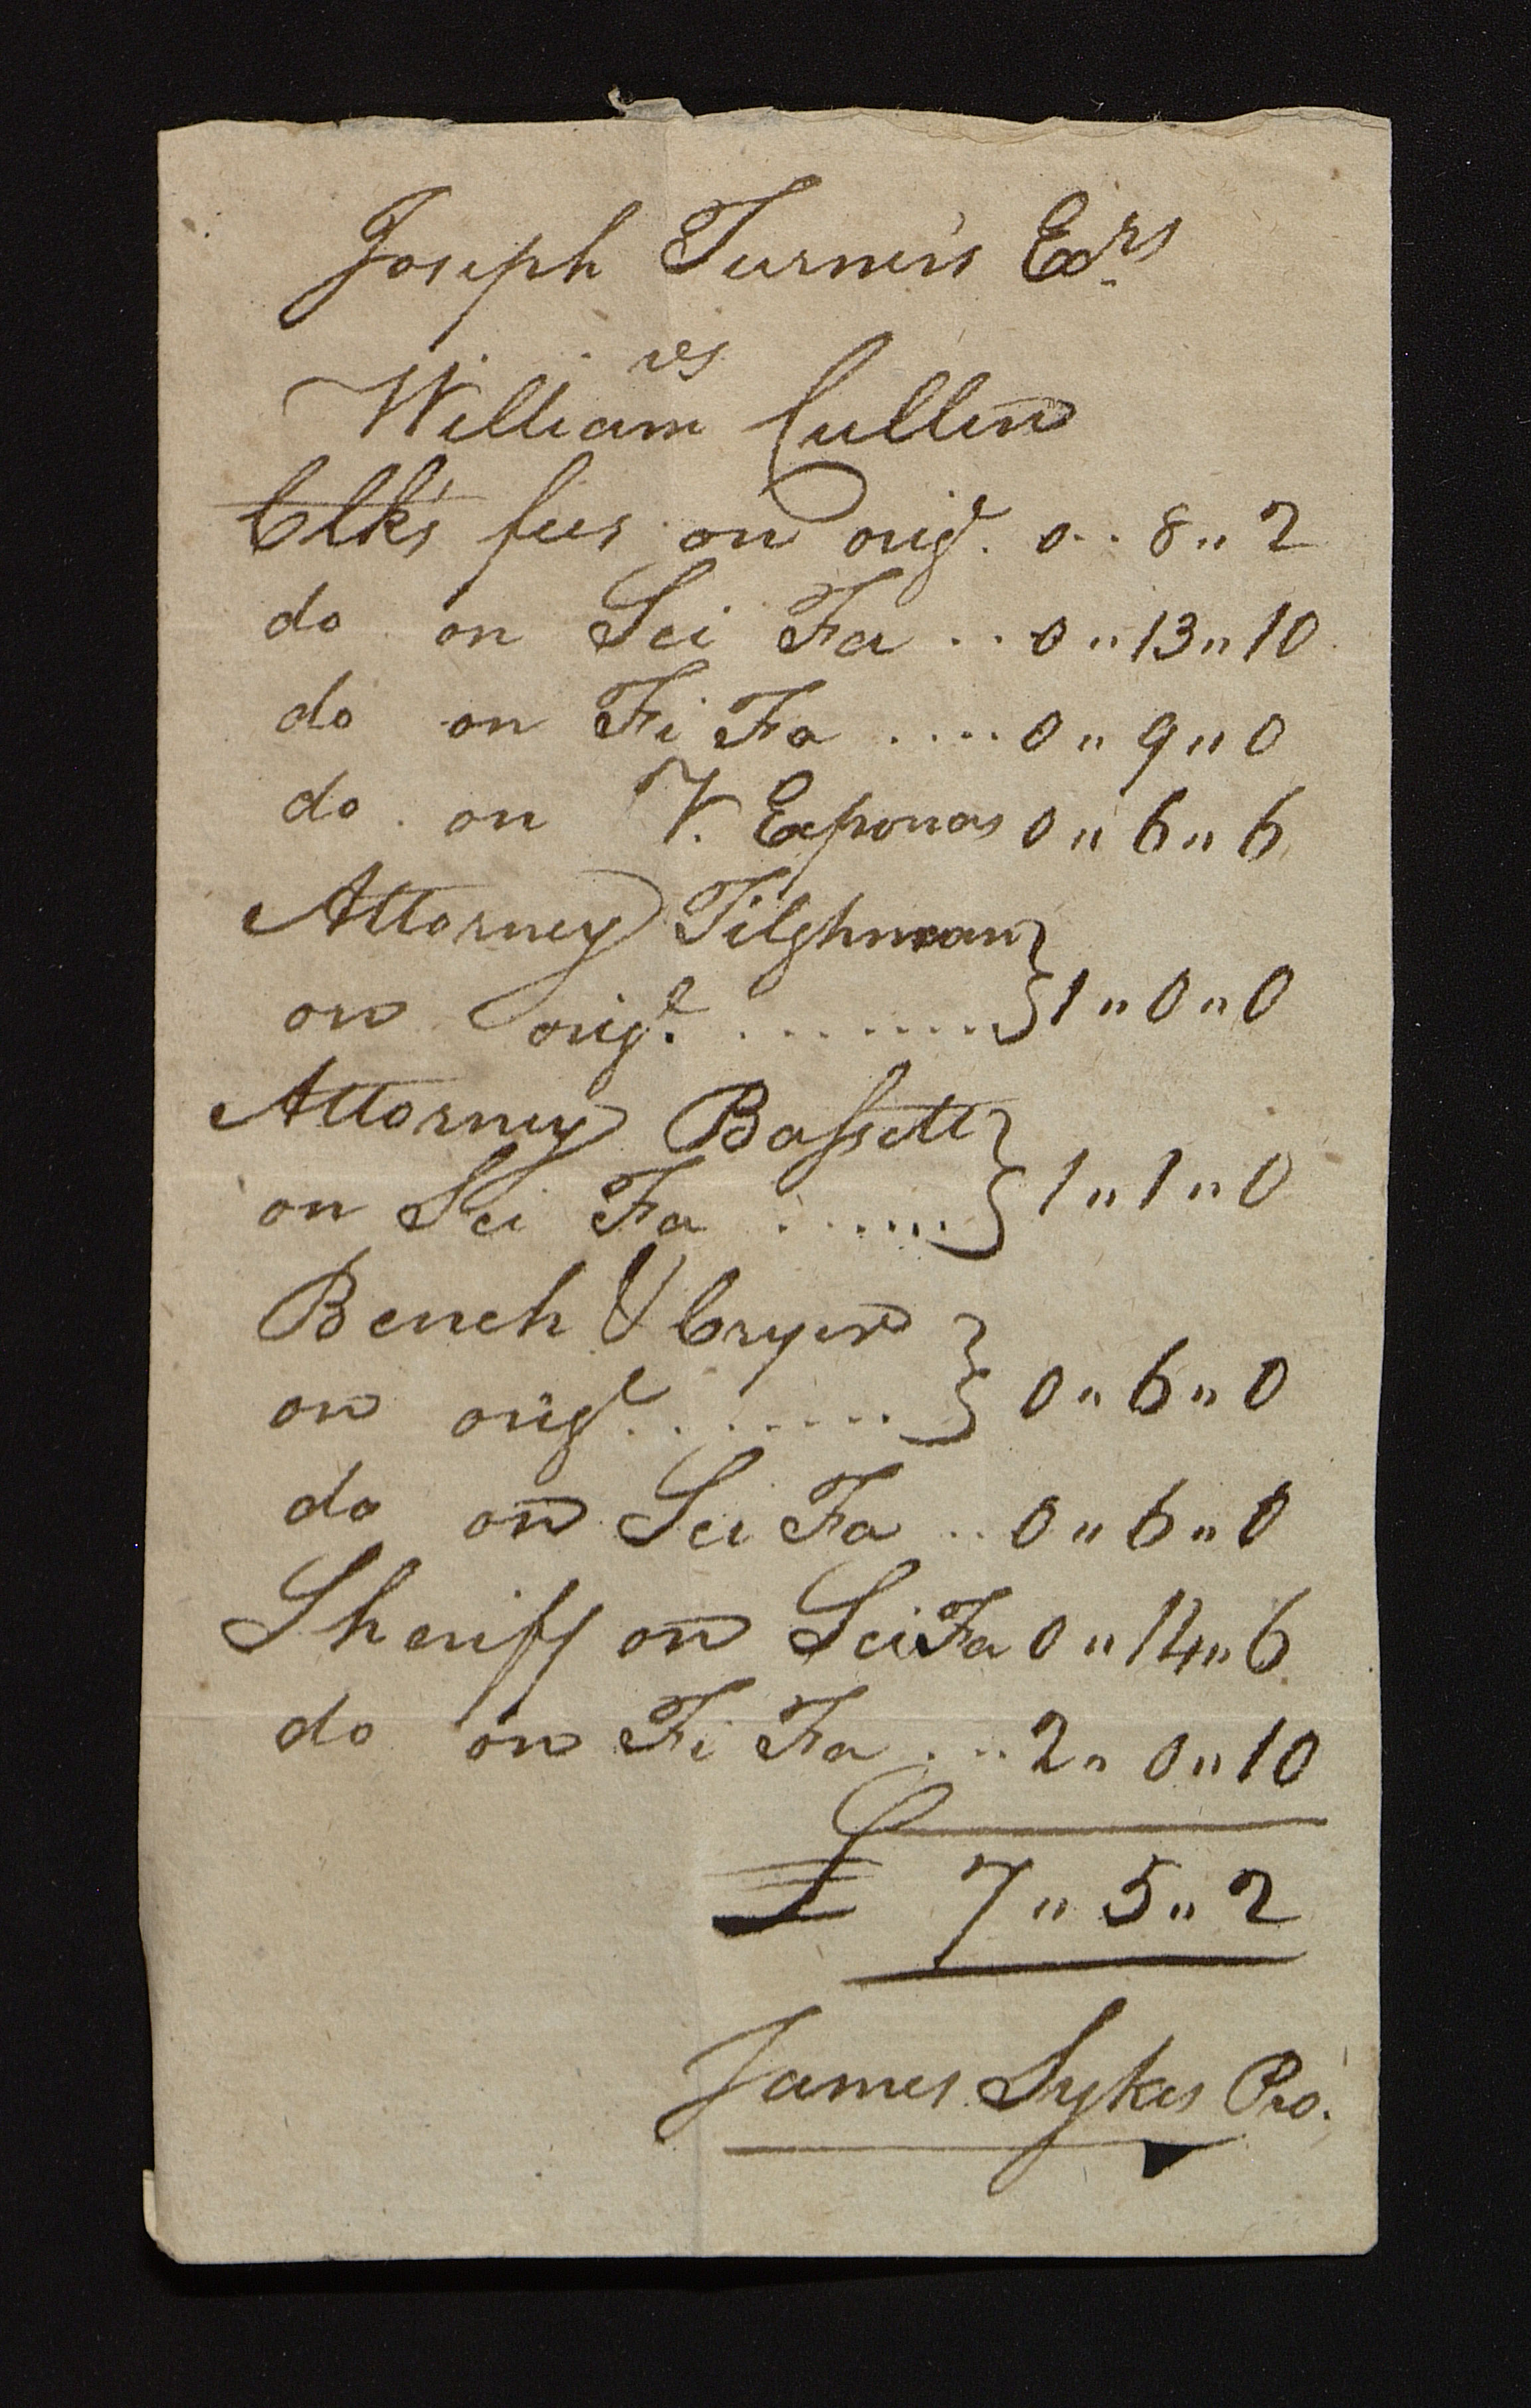 Joseph Turner's Exrs
vs
William Cullen
Clk's fees on origl. 0..8"2
do on Sci Fa ..0"13"10
do on Fi Fa ....0"9"0
do. on V. Exponas 0"6"6
Attorney Tilghman
on origl. ......... } 1"0"0
Attorney Bassett
on Sci Fa ....... } 1"1"0
Bench & Cryer
on origl ........ } 0"6"0
do on Sci Fa ..0"6"0
Sheriff on Sci Fa 0"14"6
do on Fi Fa ...2"0"10
£ 7"5"2
James Sykes Pro.